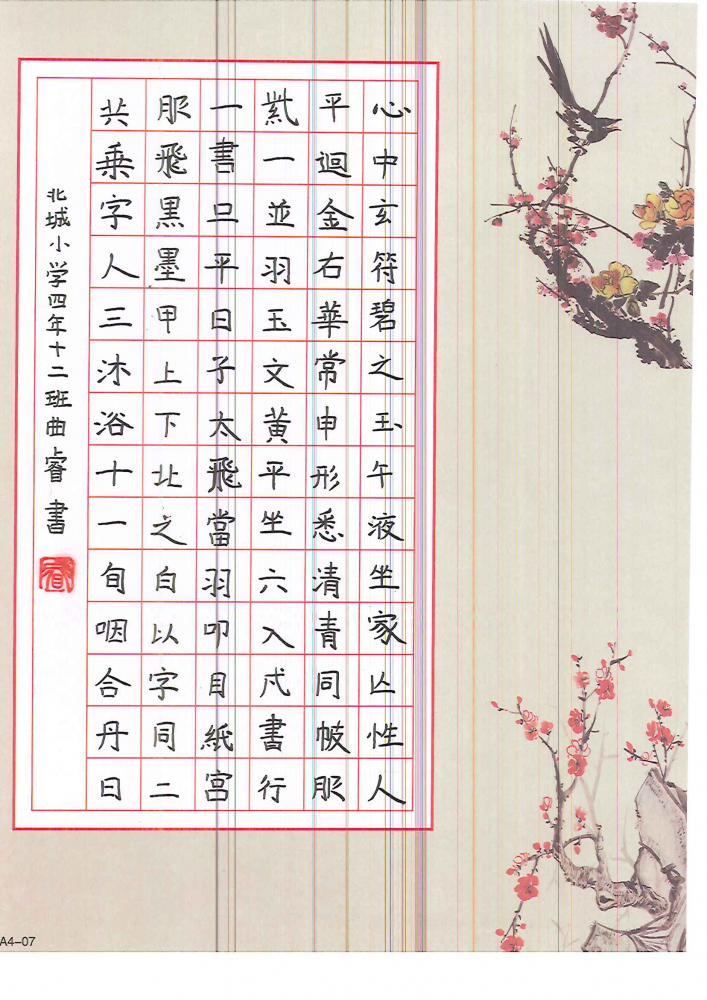 心中玄符碧之玉午液坐家亾性人
平迴金右華常申形悉清青同帔服
紫一並羽玉文黄平坐六入戌書行
一書旦平日子太飛當羽叩目紙宮
服飛黑墨甲上下北之白以字同二
共乗字人三沐浴十一旬咽合丹日
北城小学四年十二班曲睿書
A4-07